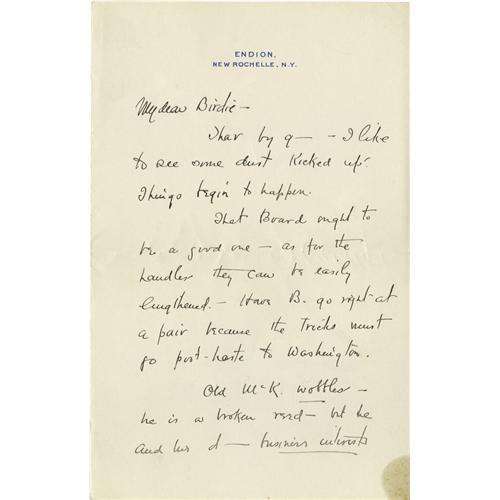 ENDION,
NEW ROCHELLE, N.Y.
My dear Birdie—
Thar by g— — I like
to see some dust kicked up!
Things begin to happen.
That Board ought to
be a good one — as for the
handles they can be easily
lengthened. — Have B. go right at
a pair because the tricks must
go post-haste to Washington.
Old McK. wobbles —
he is a broken reed — but he
and his d— business interests